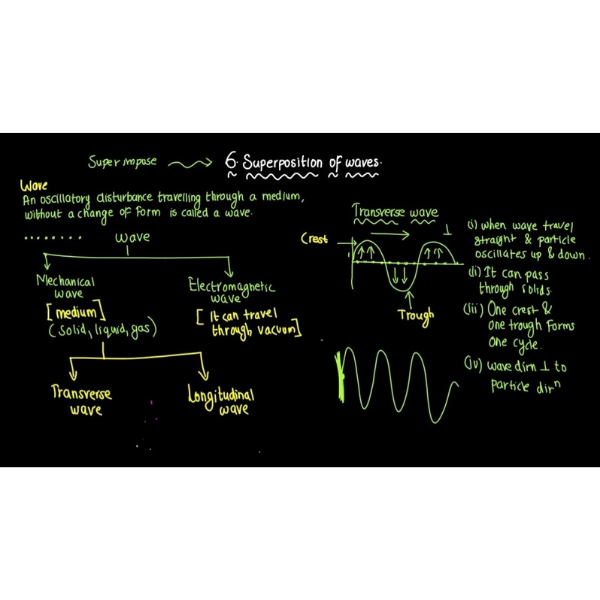 Super impose → 6. Superposition of waves.
Wave
An oscillatory disturbance travelling through a medium,
without a change of form is called a wave.
wave
Mechanical
wave
[medium]
(solid, liquid, gas)
Electromagnetic
wave
[It can travel
through vacuum]
Transverse
wave
Longitudinal
wave
Transverse wave
Crest
⊥
Trough
(i) when wave travel
straight & particle
oscillates up & down.
(ii) It can pass
through solids
(iii) One crest &
one trough forms
one cycle.
(iv) wave dirn ⊥ to
particle dirⁿ